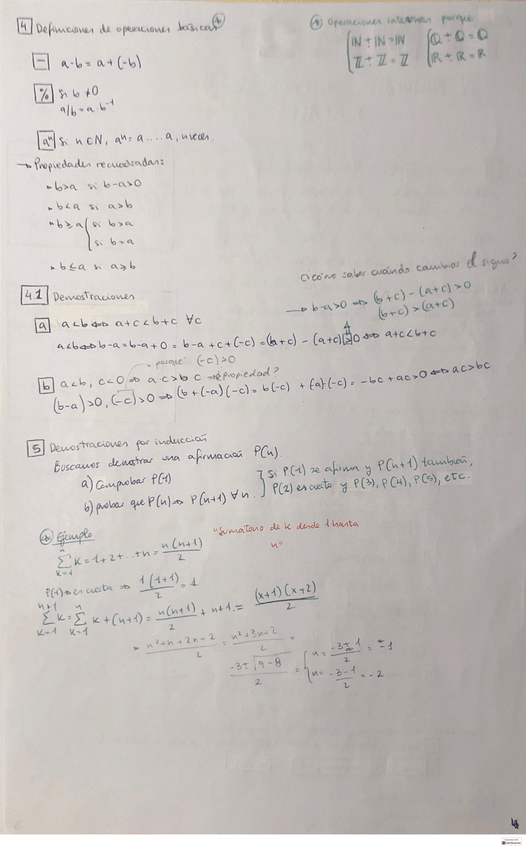 4 Definiciones de operaciones básicas (*)
(*) Operaciones internas porque
{ ℕ + ℕ = ℕ { ℚ ÷ ℚ = ℚ
ℤ ÷ ℤ = ℤ ℝ ÷ ℝ = ℝ
- a-b = a + (-b)
% Si b ≠ 0
a/b = a·b⁻¹
aⁿ si n ∈ ℕ, aⁿ = a....a, n veces.
→ Propiedades recuadradas:
b>a si b-a>0
b<a si a>b
b≥a { si b>a
si b=a
b≤a si a≥b
¿cómo saber cuándo cambiar el signo?
4.1 Demostraciones
→ b-a>0 ⇒ (b+c) - (a+c) > 0
(b+c) > (a+c)
a a<b ⇔ a+c<b+c ∀c
a<b ⇔ b-a = b-a+0 = b-a+c+(-c) = (b+c) - (a+c) > 0 ⇔ a+c<b+c
porque (-c)>0
b a<b, c<0 ⇒ a·c>b·c → ¿Propiedad?
(b-a)>0, (-c)>0 ⇒ (b+(-a)(-c) = b(-c) + (-a)(-c) = -bc + ac > 0 ⇔ ac>bc
5 Demostraciones por inducción
Buscamos demostrar una afirmación P(n).
a) Comprobar P(1)
b) probar que P(n) ⇒ P(n+1) ∀n.
} Si P(1) se afirma y P(n+1) también,
P(2) es cierto y P(3), P(4), P(5), etc.
(*) Ejemplo
"Sumatorio de k desde 1 hasta
n"
∑ k=1 n k = 1+2+...+n = n(n+1)/2
P(1) → es cierta ⇒ 1(1+1)/2 = 1
∑ k=1 n+1 k = ∑ k=1 n k + (n+1) = n(n+1)/2 + n+1 = (x+1)(x+2)/2
= n²+n+2n+2/2 = n²+3n+2/2 =
-3±√9-8/2 = { n = -3+1/2 = -1
n = -3-1/2 = -2